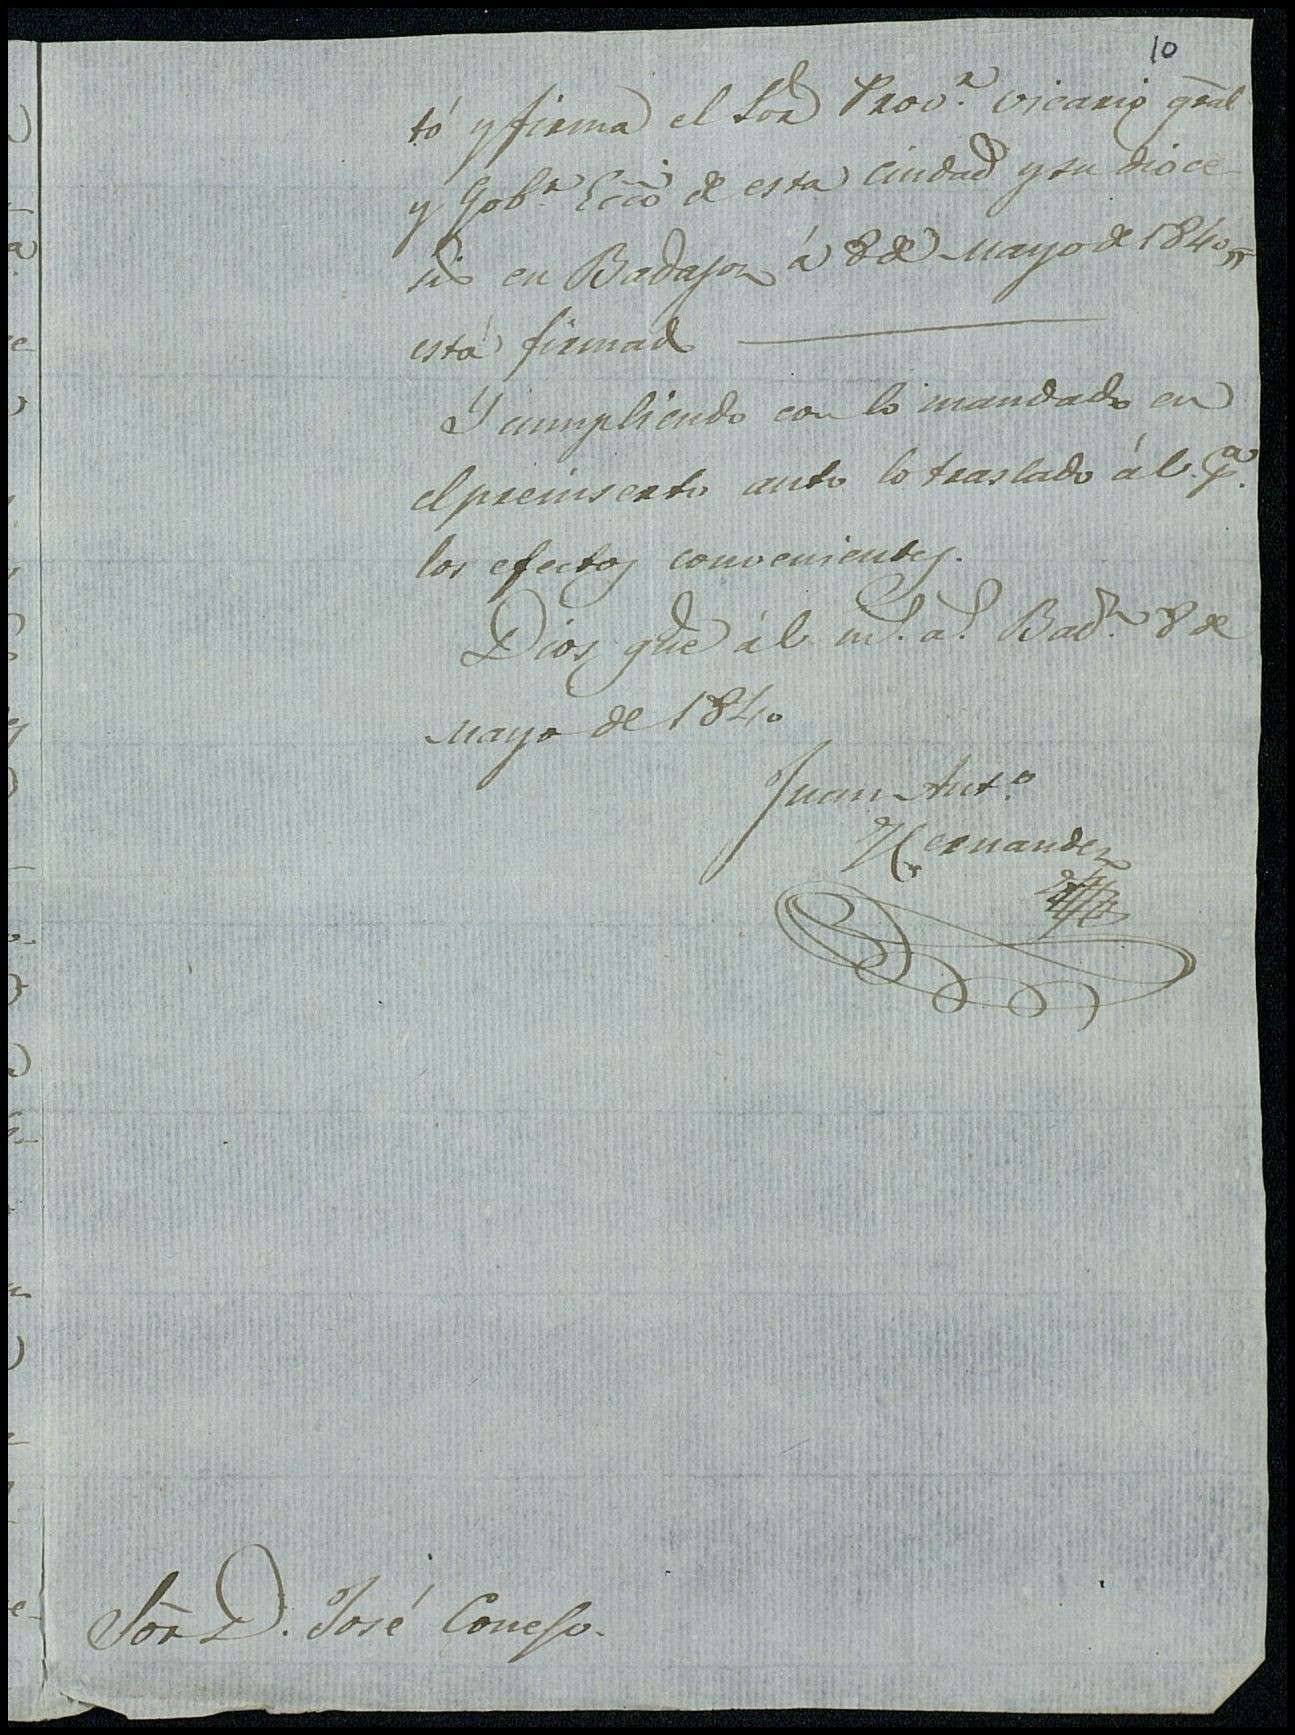 10
tó y firma el Sor Prov.r vicario gral
y Gobr. Ecco de esta ciudad y su dioce-
sis en Badajoz á 8 de Mayo de 1840 =
está firmado
Y cumpliendo con lo mandado en
el preinserto auto lo traslado á V. pa.
los efectos convenientes.
Dios gue á V. ms. as. Badz. 8 de
Mayo de 1840
Juan Anto.
Hernandez
Sor D. José Conejo.